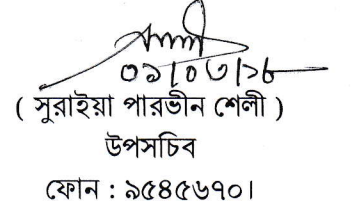 ০১/০৩/১৮
( সুরাইয়া পারভীন শেলী )
উপসচিব
ফোন : ৯৫৪৫৬৭০।